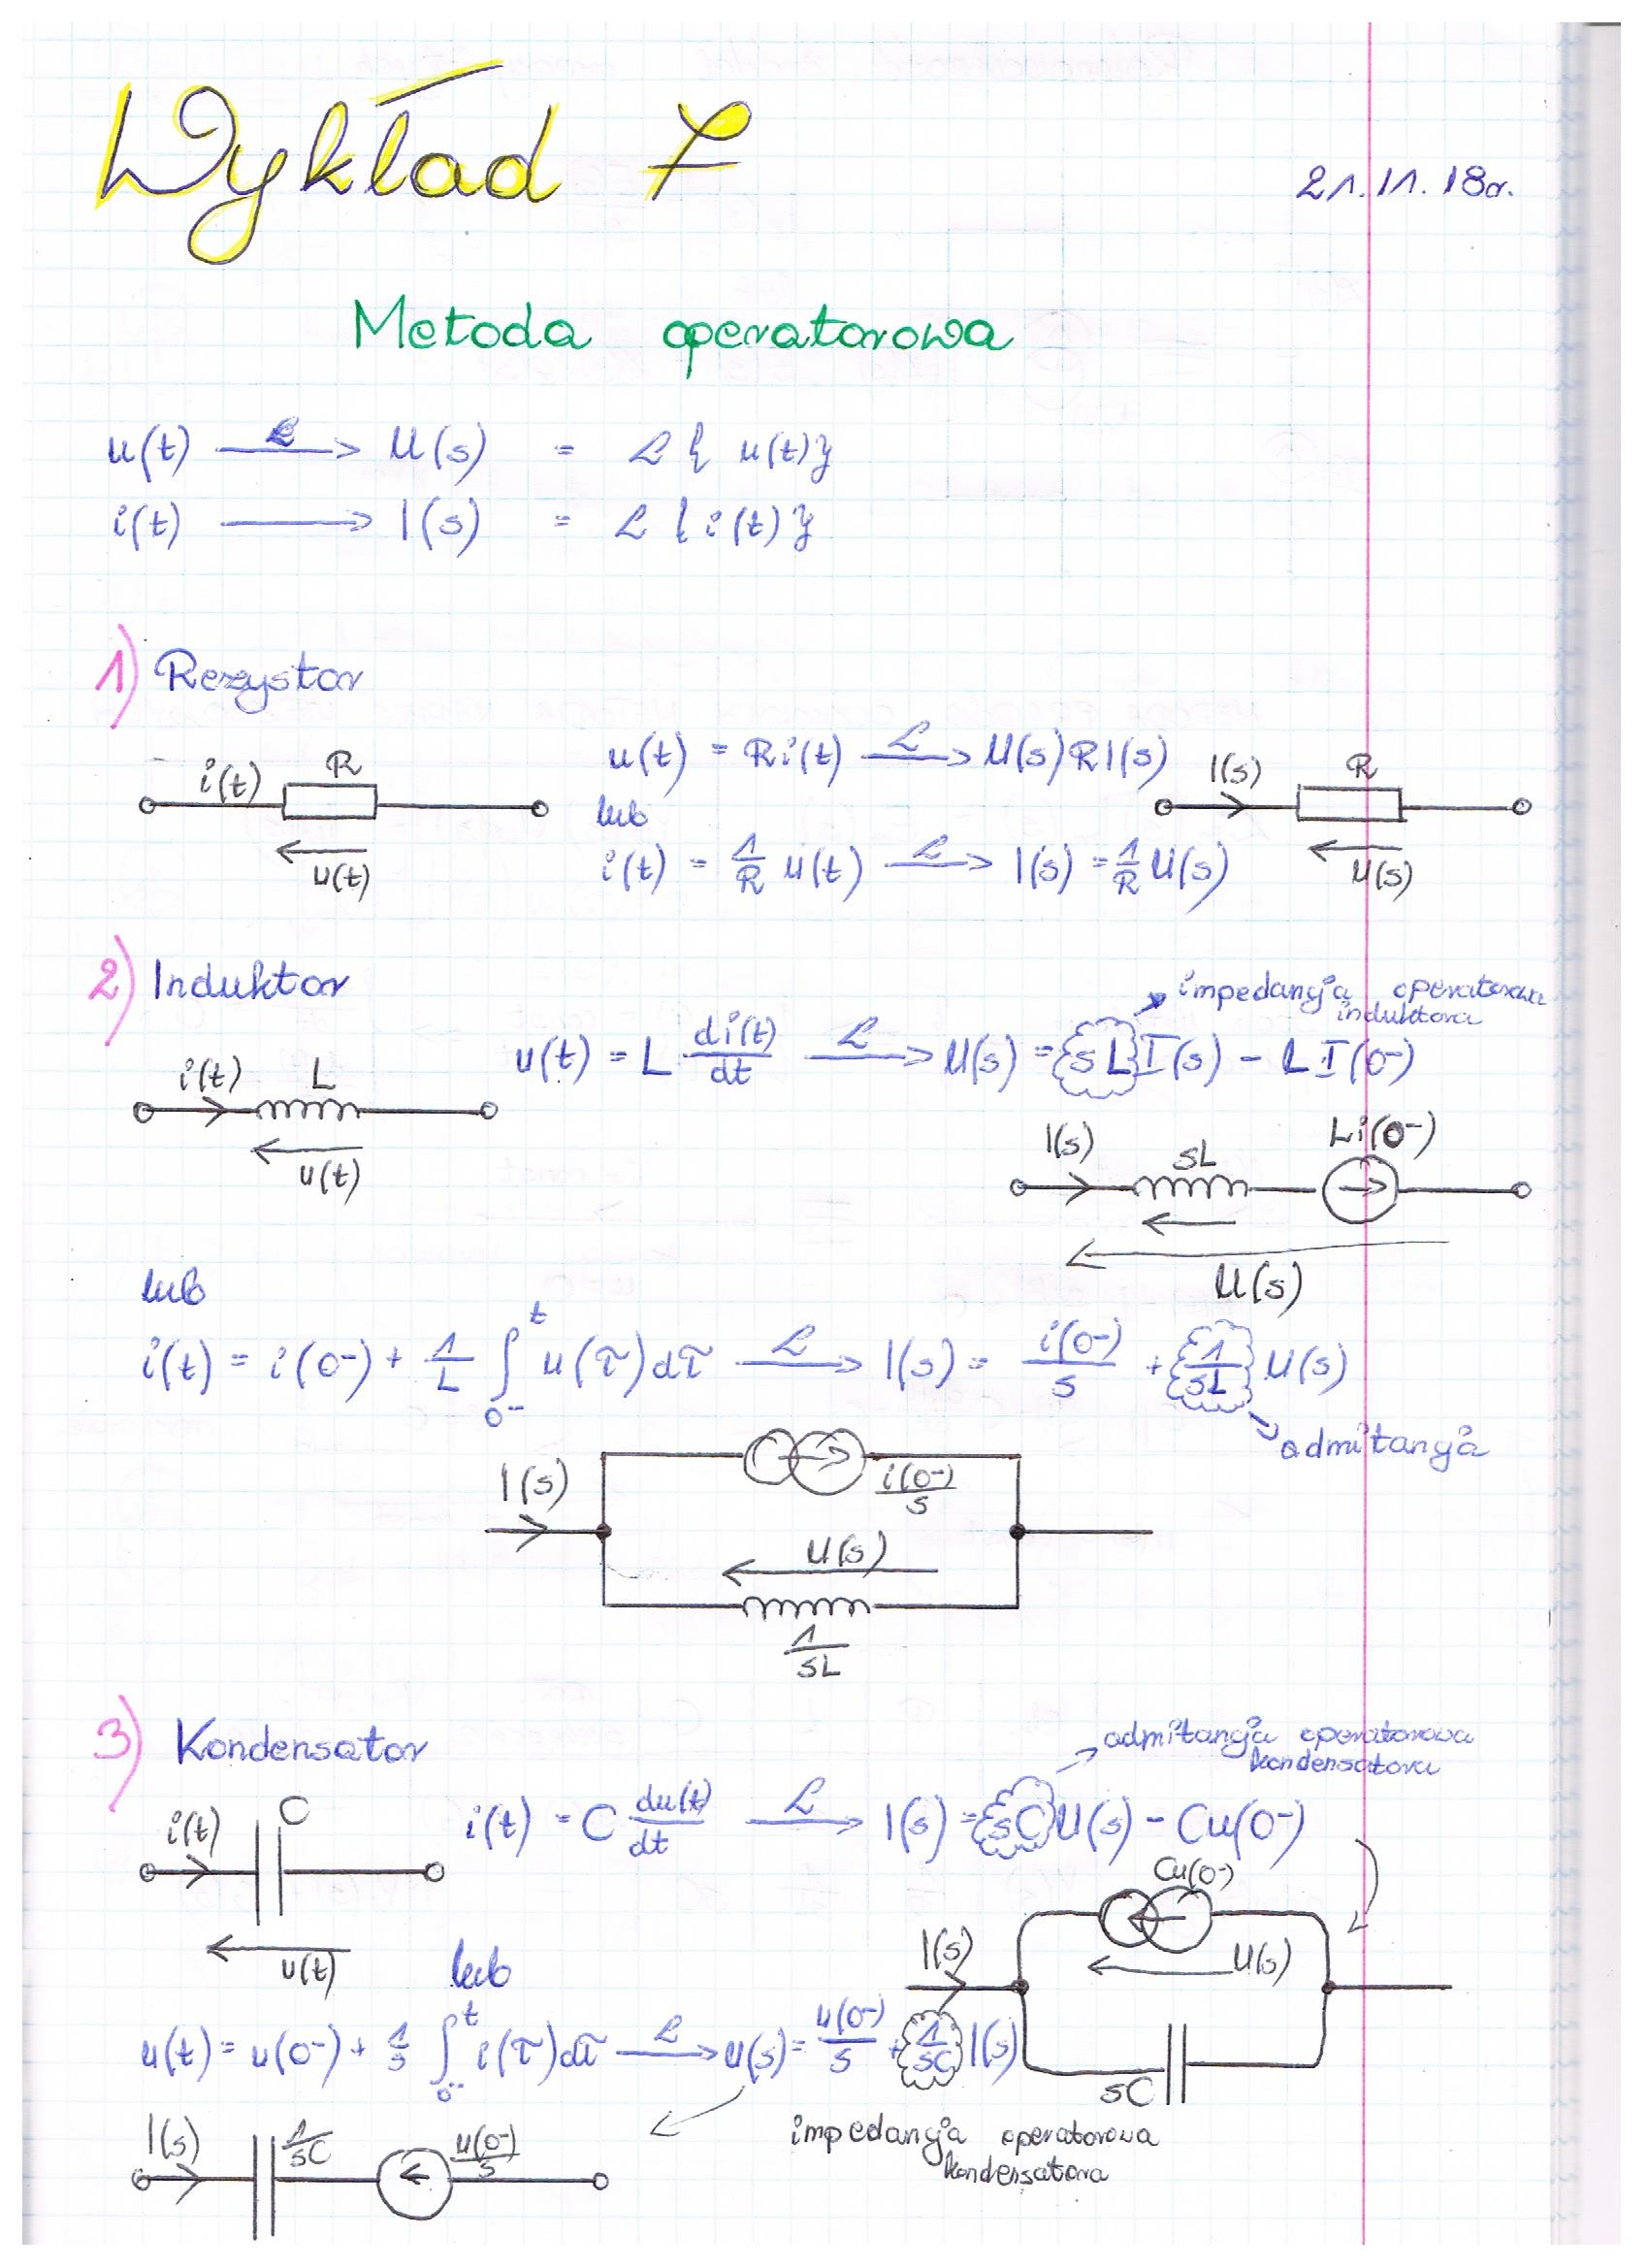 Wykład 7
21.11.18r.
Metoda operatorowa
u(t) —ℒ→ U(s) = ℒ{u(t)}
i(t) ⟶ I(s) = ℒ{i(t)}
1) Rezystor
i(t) R u(t)
u(t) = Ri(t) —ℒ→ U(s)RI(s)
I(s) R U(s)
lub
i(t) = 1/R u(t) —ℒ→ I(s) = 1/R U(s)
2) Induktor
impedancja operatorowa
induktora
u(t) = L di(t)/dt —ℒ→ U(s) = sL I(s) - LI(0-)
i(t) L u(t)
I(s) sL Li(0-)
U(s)
lub
i(t) = i(0-) + 1/L ∫_{0-}^{t} u(τ)dτ —ℒ→ I(s) = i(0-)/s + 1/sL U(s)
admitancja
I(s) i(0-)/s
U(s)
1/sL
3) Kondensator
admitancja operatorowa
kondensatora
i(t) C u(t)
i(t) = C du(t)/dt —ℒ→ I(s) = sC U(s) - Cu(0-)
Cu(0-)
I(s) U(s)
sC
lub
u(t) = u(0-) + 1/s ∫_{0-}^{t} i(τ)dτ —ℒ→ U(s) = u(0-)/s + 1/sC I(s)
impedancja operatorowa
kondensatora
I(s) 1/sC u(0-)/s